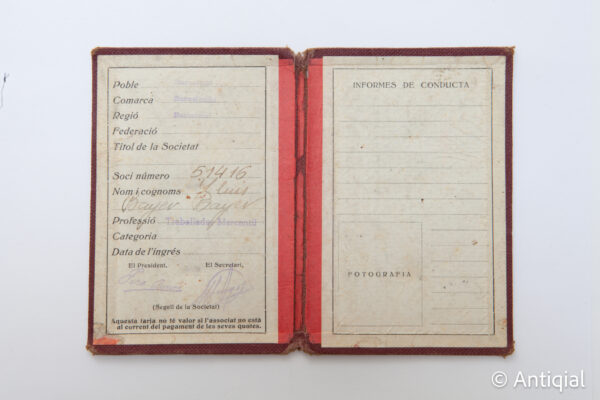 Poble
Comarca
Regió
Federació
Títol de la Societat
Soci número 51416
Nom i cognoms Lluis
Bayer Bayer
Professió Treballador Mercantil
Categoria
Data de l'ingrés
El President. El Secretari,
(Segell de la Societat)
Aquesta tarja no té valor si l'associat no está
al corrent del pagament de les seves quotes.
INFORMES DE CONDUCTA
FOTOGRAFIA
© Antiqial